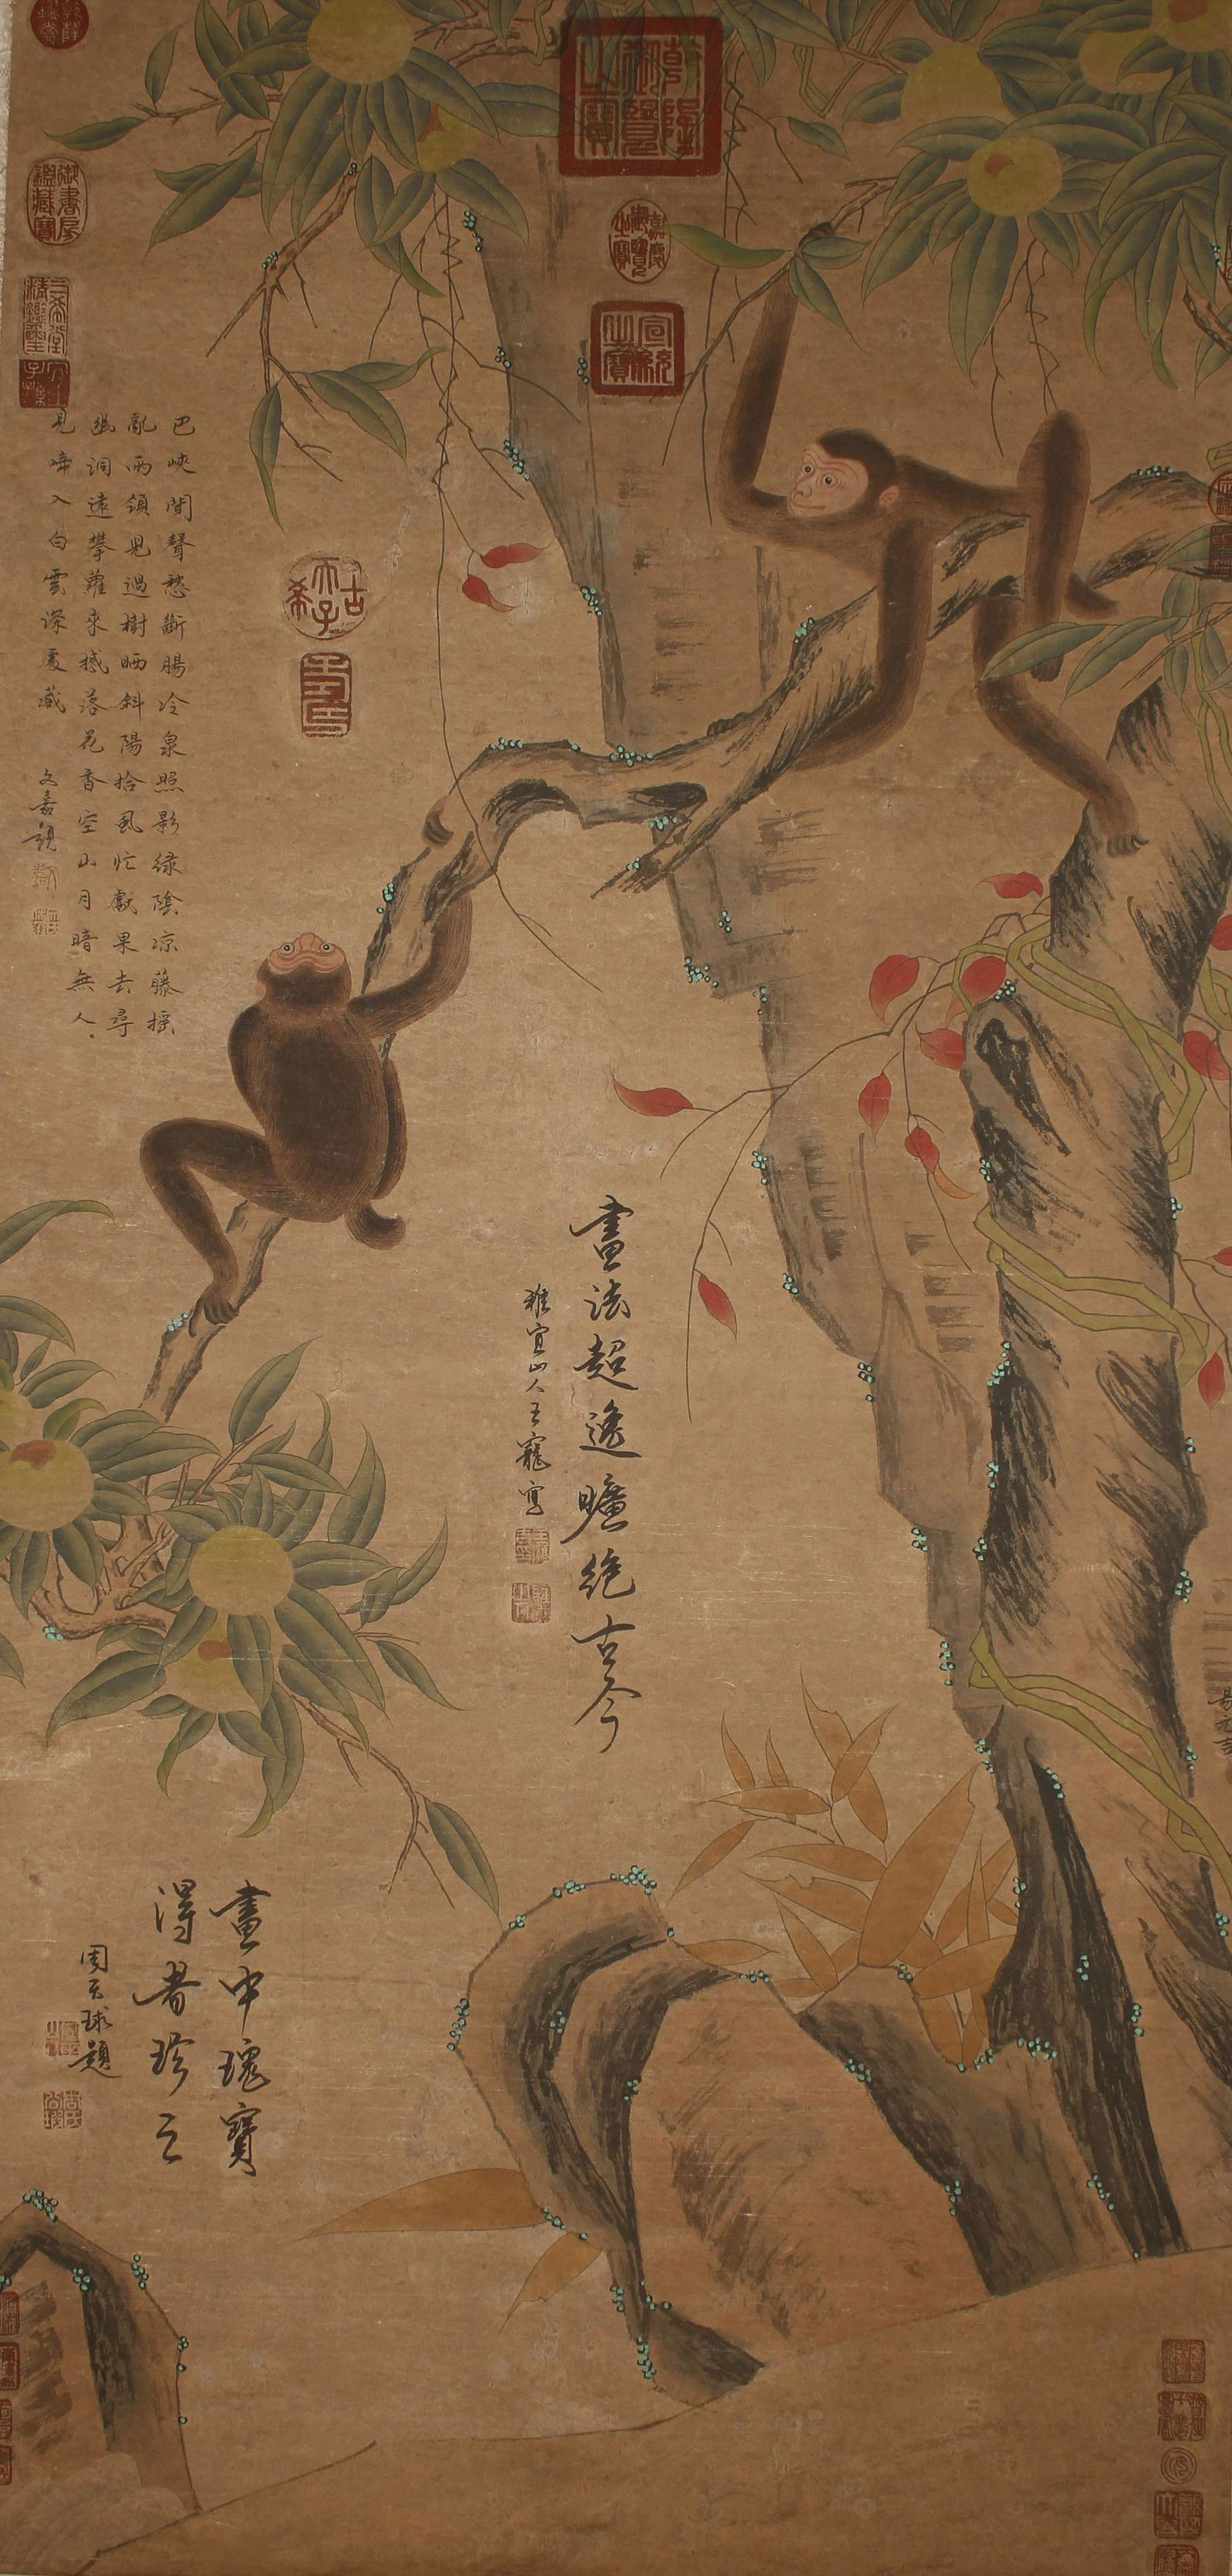 乾隆御覽之寶
嘉慶御覽之寶
宣統之寶
御書房鑑藏寶
三希堂精鑑璽
宜子孫
巴峽聞聲愁斷腸冷泉照影綠陰凉藤摇
亂雨領兒過樹晒斜陽拾虱忙獻果去尋
幽洞遠攀蘿來撼落花香空山月暗無人
見啼入白雲深處藏
文嘉題
古希天子
壽
畫法超逸曠絶古今
雅宜山人王寵寫
易元吉
畫中瑰寶
得者珍之
周天球題